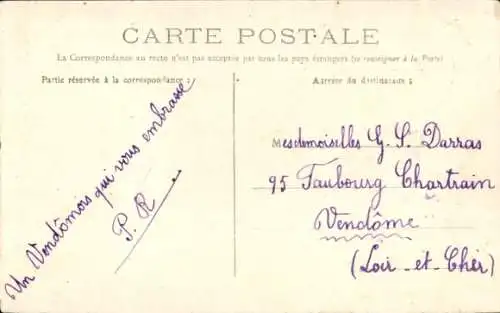 CARTE POSTALE
La Correspondance au recto n'est pas acceptée par tous les pays étrangers (se renseigner à la Poste)
Partie réservée à la correspondance :
Adresse du destinataire :
Un Vendômois qui vous embrasse
P. R
Mesdemoiselles G. S. Darras
95 Faubourg Chartrain
Vendôme
(Loir-et-Cher)